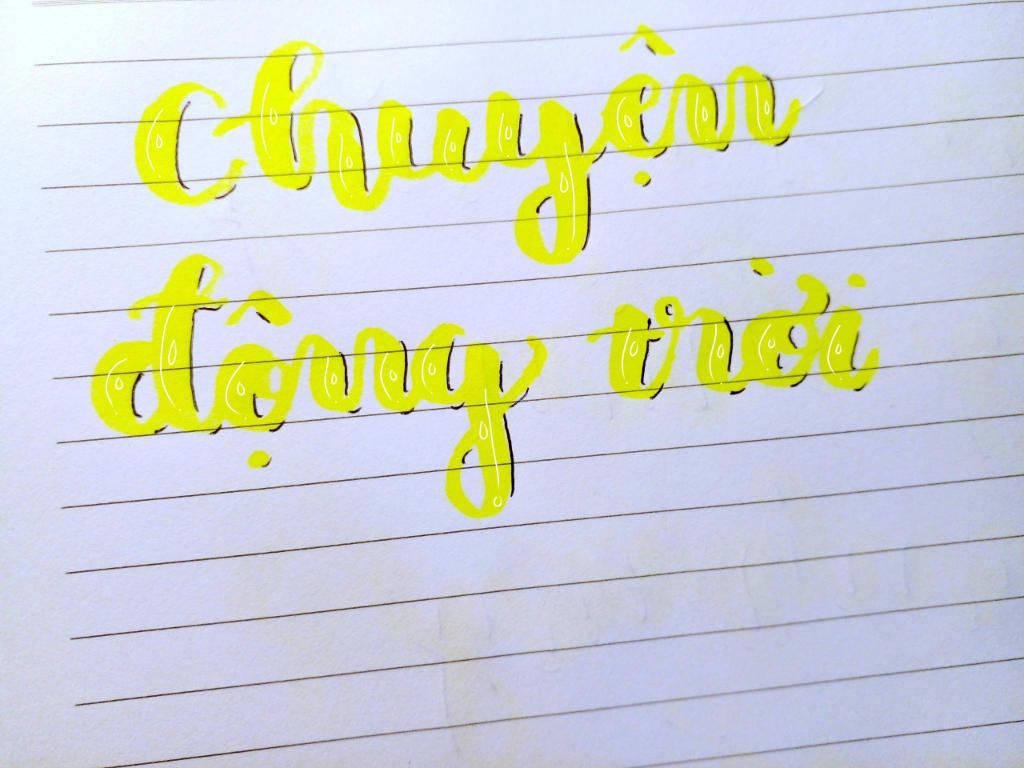 Chuyện
động trời